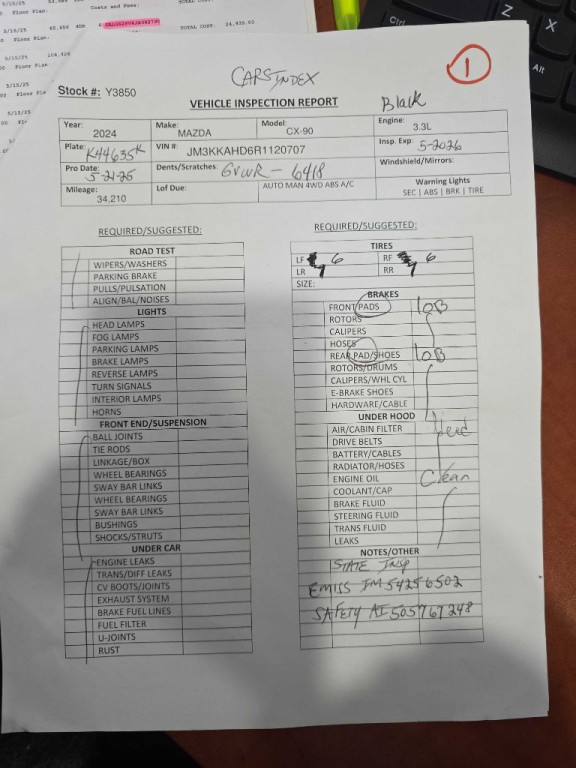 5/15/25
Floor Plan.
Costs and Fees:
TOTAL COST: 24,935.00
CARSINDEX
1
Stock #: Y3850
VEHICLE INSPECTION REPORT
Black
Year: 2024 Make: MAZDA Model: CX-90 Engine: 3.3L
Plate: K44635K VIN #: JM3KKAHD6R1120707 Insp. Exp: 5-2026
Pro Date: 5-21-25 Dents/Scratches: GVWR - 6418 Windshield/Mirrors:
Mileage: 34,210 Lof Due: AUTO MAN 4WD ABS A/C Warning Lights
SEC | ABS | BRK | TIRE
REQUIRED/SUGGESTED:
ROAD TEST
WIPERS/WASHERS
PARKING BRAKE
PULLS/PULSATION
ALIGN/BAL/NOISES
LIGHTS
HEAD LAMPS
FOG LAMPS
PARKING LAMPS
BRAKE LAMPS
REVERSE LAMPS
TURN SIGNALS
INTERIOR LAMPS
HORNS
FRONT END/SUSPENSION
BALL JOINTS
TIE RODS
LINKAGE/BOX
WHEEL BEARINGS
SWAY BAR LINKS
WHEEL BEARINGS
SWAY BAR LINKS
BUSHINGS
SHOCKS/STRUTS
UNDER CAR
ENGINE LEAKS
TRANS/DIFF LEAKS
CV BOOTS/JOINTS
EXHAUST SYSTEM
BRAKE FUEL LINES
FUEL FILTER
U-JOINTS
RUST
REQUIRED/SUGGESTED:
TIRES
LF 6 RF 6
LR 7 RR 7
SIZE:
BRAKES
FRONT PADS 10B
ROTORS
CALIPERS
HOSES
REAR PAD/SHOES 10B
ROTORS/DRUMS
CALIPERS/WHL CYL
E-BRAKE SHOES
HARDWARE/CABLE
UNDER HOOD
AIR/CABIN FILTER
DRIVE BELTS
BATTERY/CABLES
RADIATOR/HOSES
ENGINE OIL Clean
COOLANT/CAP
BRAKE FLUID
STEERING FLUID
TRANS FLUID
LEAKS
NOTES/OTHER
STATE INSP
EMISS IM 54256502
SAFETY AI 505767248
Ctrl
Z
X
Alt